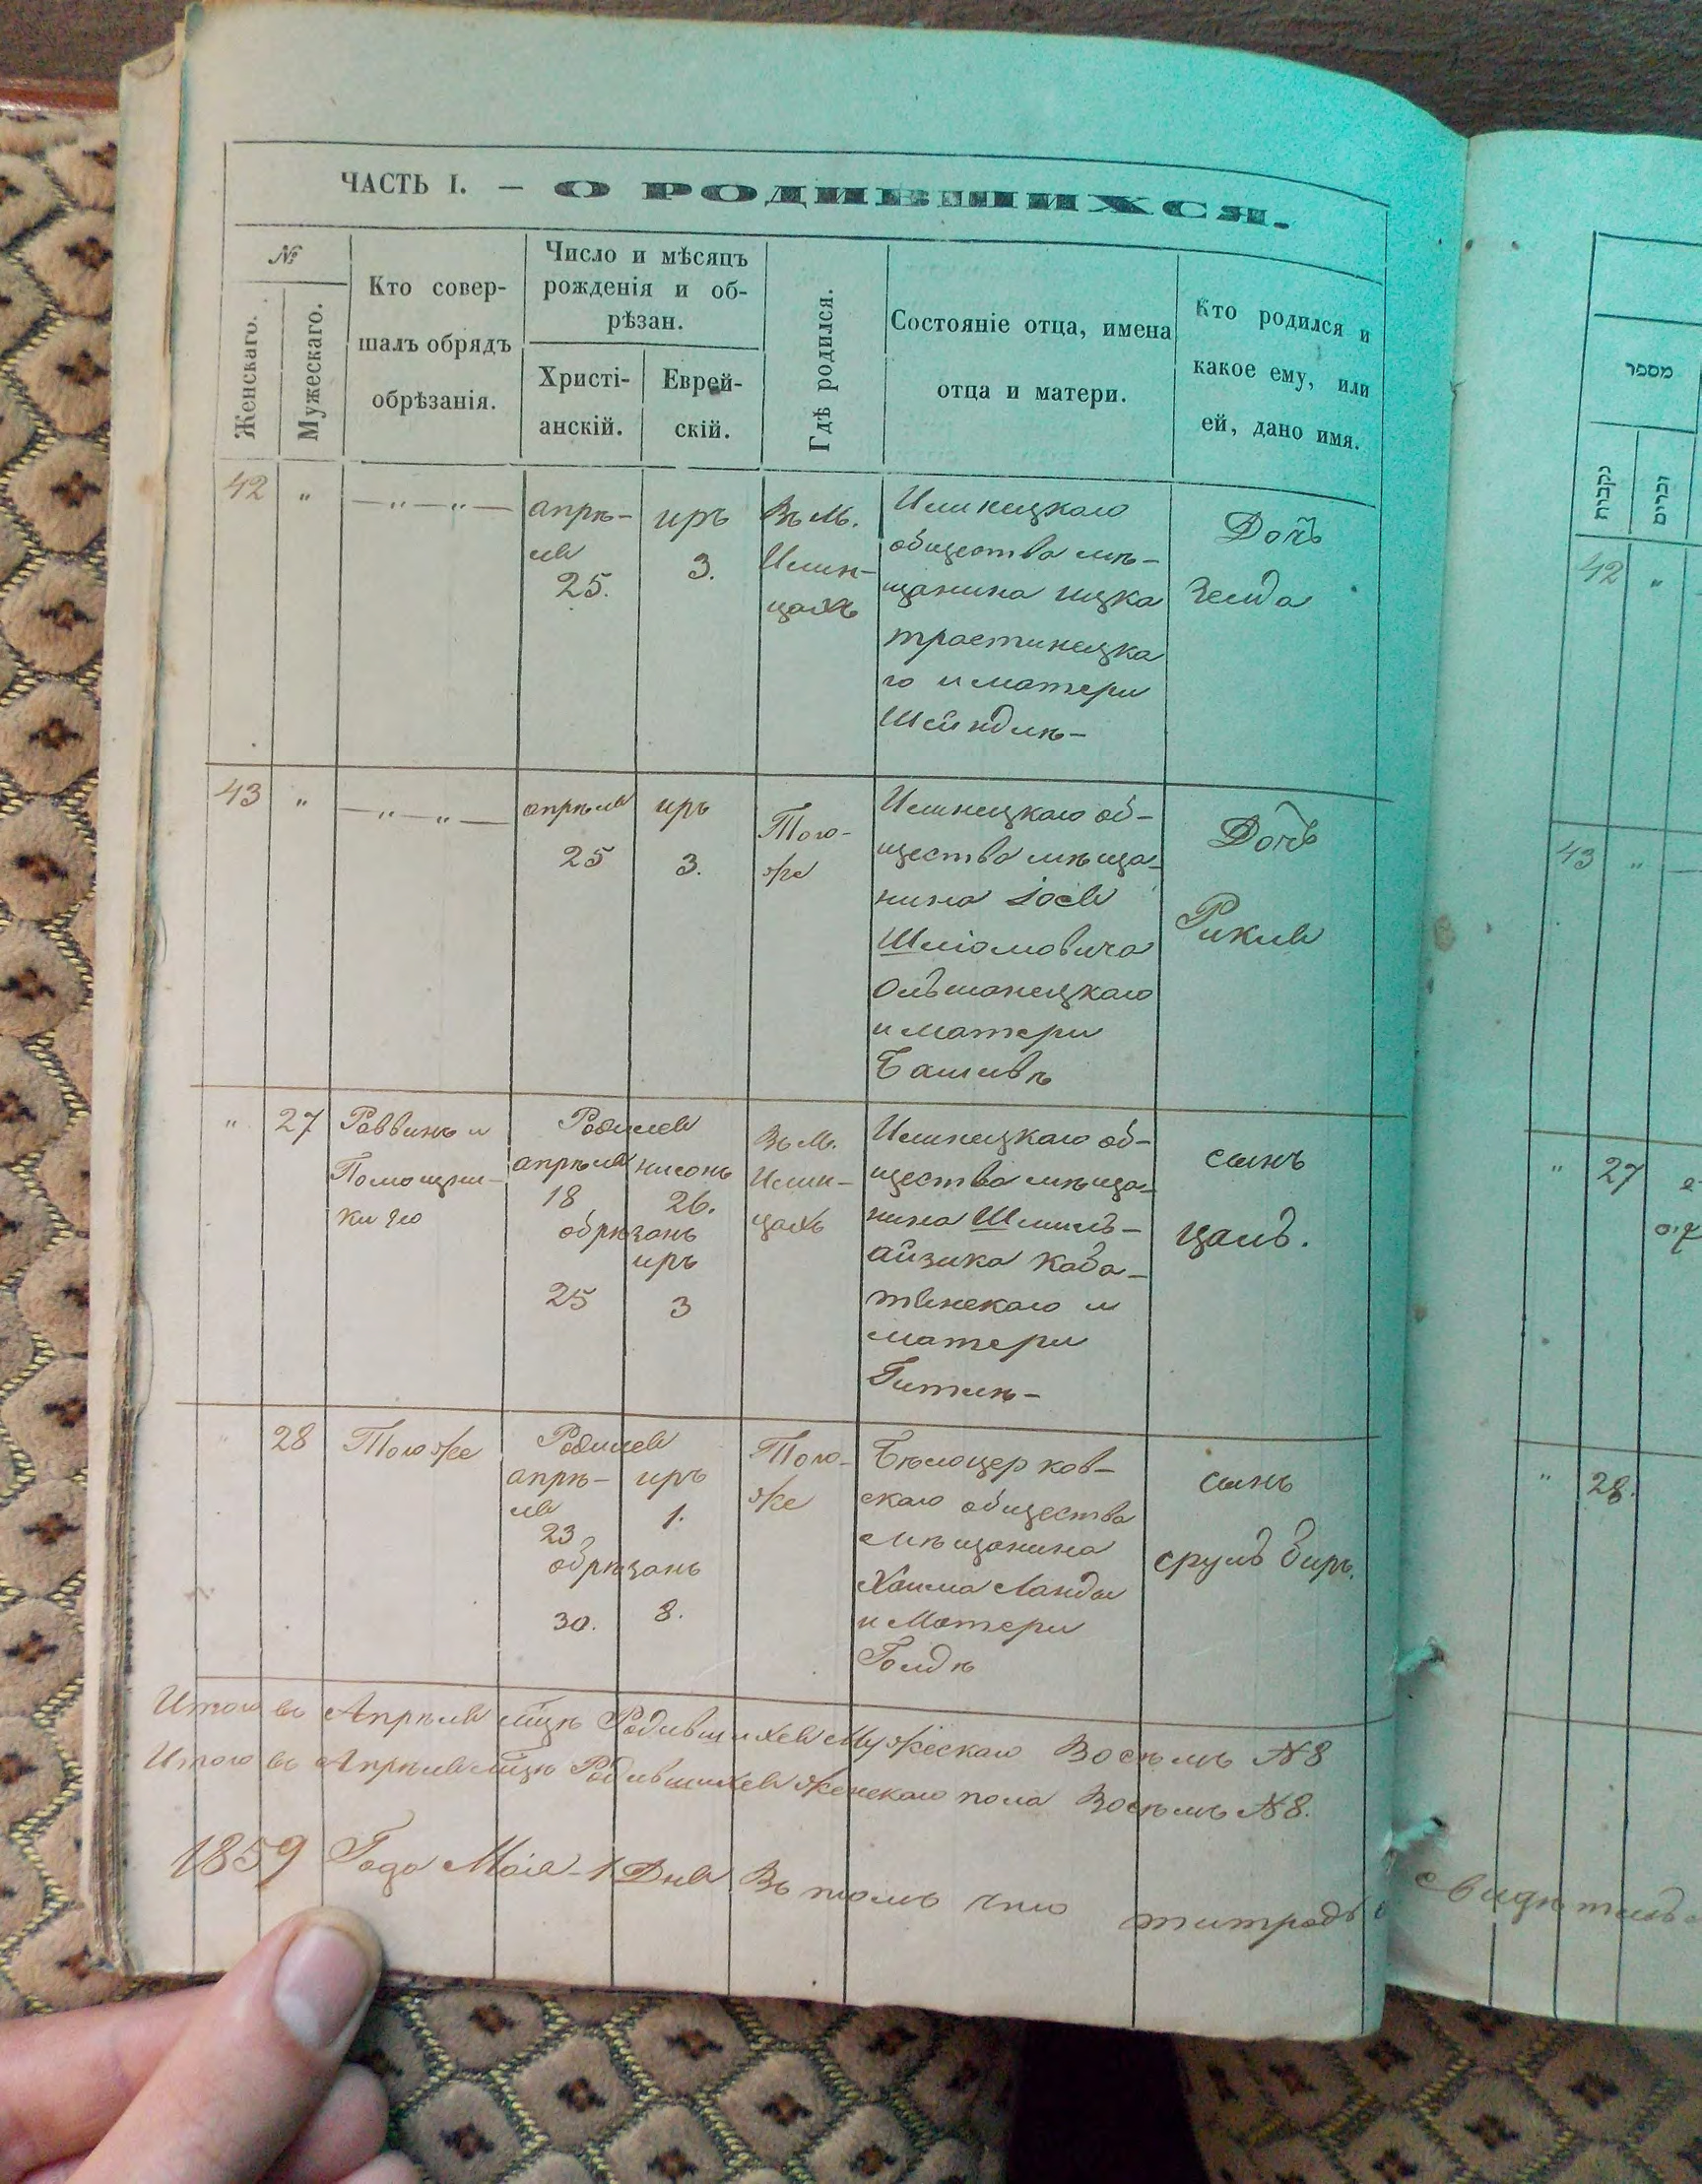 ЧАСТЬ I. — О РОДИВШИХСЯ.
№
Женскаго.
Мужескаго.
Кто совер-
шалъ обрядъ
обрѣзанія.
Число и мѣсяцъ
рожденія и об-
рѣзан.
Христі-
анскій.
Еврей-
скій.
Гдѣ родился.
Состояніе отца, имена
отца и матери.
Кто родился и
какое ему, или
ей, дано имя.
42
"
— " — " —
апрѣ-
ля
25.
иръ
3.
Въ М.
Илин-
цахъ
Илинецкаго
общества мѣ-
щанина ицка
тростинецка
го и матери
Шейндлѣ-
Дочь
Зелда
43
"
— " — " —
апрѣля
25
иръ
3.
Того-
же
Илинецкаго об-
щества мѣща-
нина Іося
Шліомовича
Ольшанецкаго
и матери
Башивѣ
Дочь
Рикля
"
27
Раввинъ и
Помощни-
ки его
Родился
апрѣля
18
нисонъ
26.
обрѣзанъ
иръ
25
3
Въ М.
Илин-
цахъ
Илинецкаго об-
щества мѣща-
нина Шмиль-
айзика
матери
Гитлѣ-
сынъ
цаль.
"
28
Того же
Родился
апрѣ-
ля
23
иръ
1.
обрѣзанъ
30.
8.
Того-
же
Бѣлоцерков-
скаго общества
мѣщанина
Хаима Ланды
и Матери
Голдѣ
сынъ
сруль биръ.
Итого въ Апрѣля мцѣ Родившихся Мужескаго Восѣмъ № 8
Итого въ Апрѣля мцѣ Родившихся женскаго пола Восѣмъ № 8.
1859 Года Маія 1 Дня Въ томъ что титрадь
מספר
נקבות
זכרים
42
"
43
"
"
27
"
28.